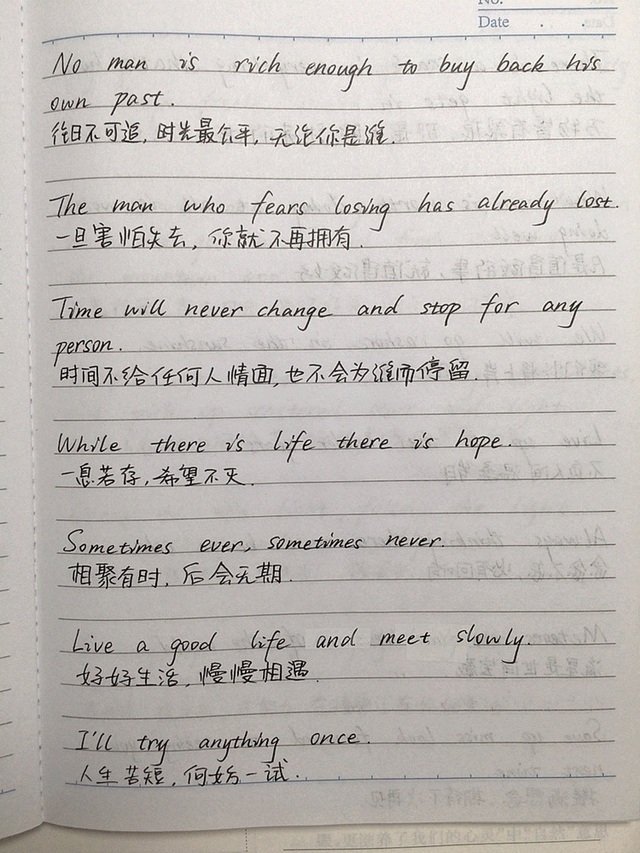 No.
Date
No man is rich enough to buy back his
own past.
往日不可追, 时光最公平, 无论你是谁.
The man who fears losing has already lost.
一旦害怕失去, 你就不再拥有.
Time will never change and stop for any
person.
时间不给任何人情面, 也不会为谁而停留.
While there is life there is hope.
一息若存, 希望不灭.
Sometimes ever, sometimes never.
相聚有时, 后会无期.
Live a good life and meet slowly.
好好生活, 慢慢相遇.
I'll try anything once.
人生苦短, 何妨一试.